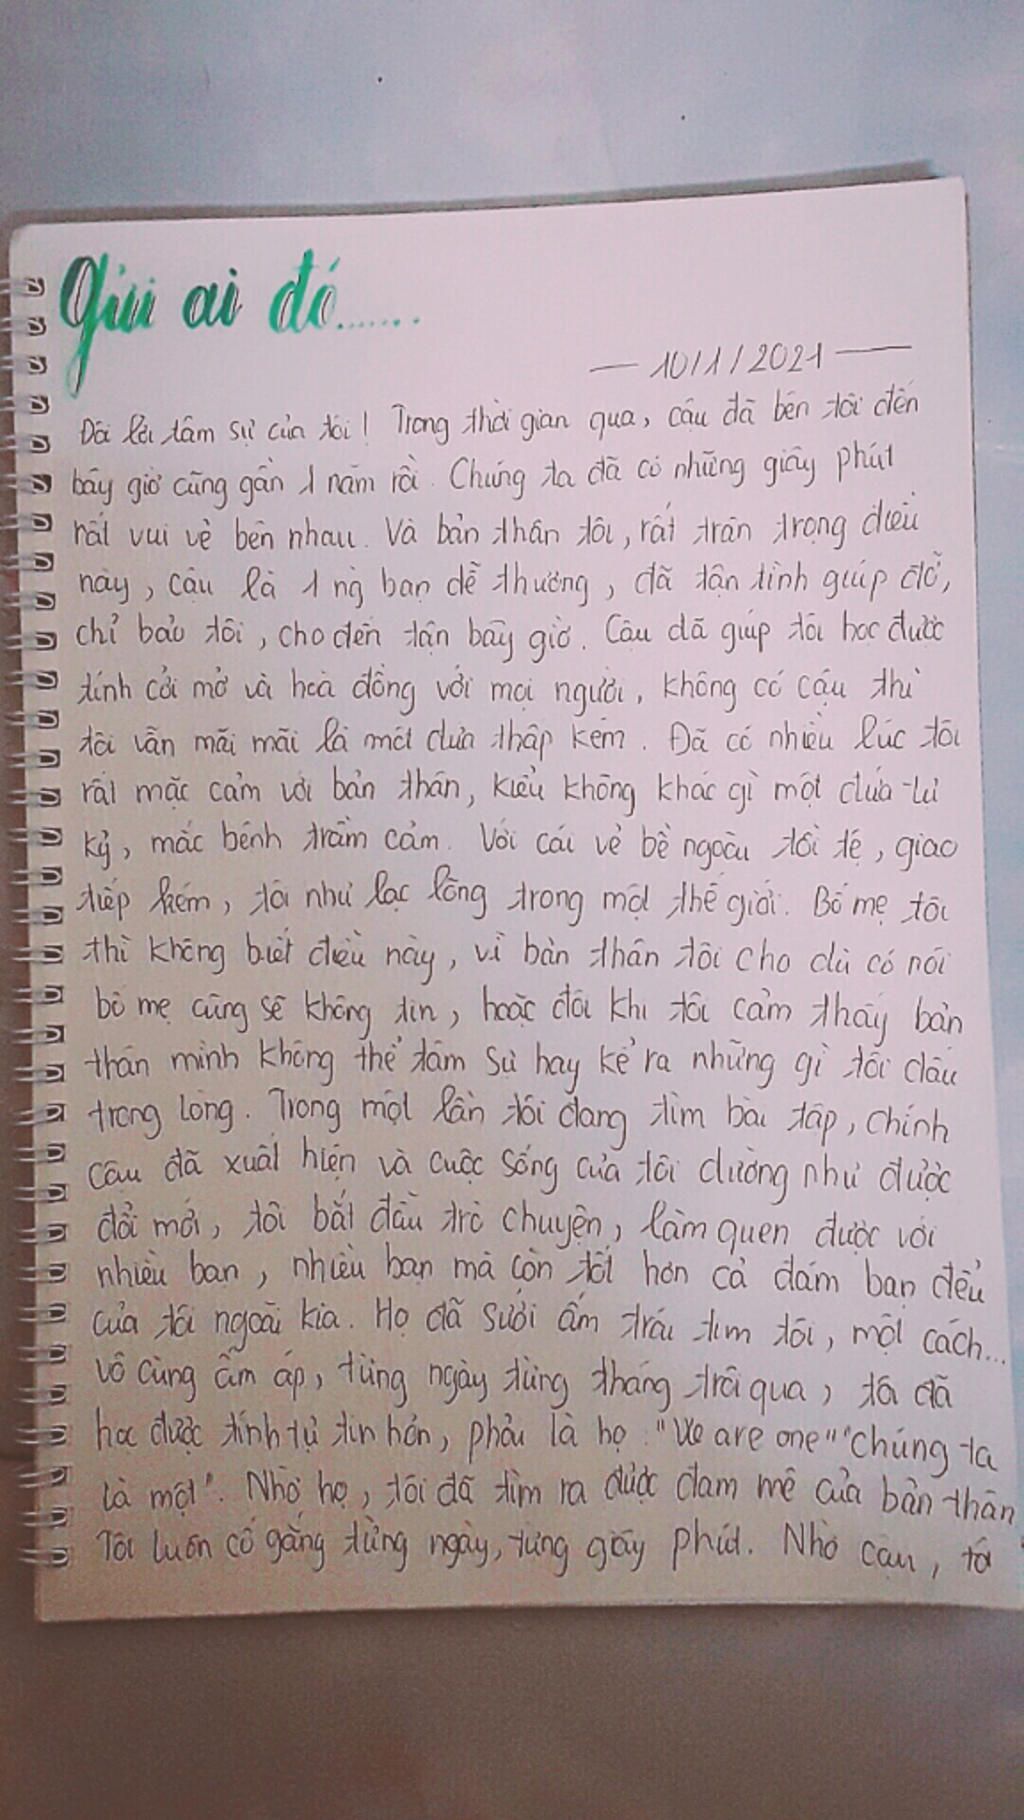 Gửi ai đó.......
— 10/1/2021 —
Đôi lời tâm sự của tôi! Trong thời gian qua, cậu đã bên tôi đến
bây giờ cũng gần 1 năm rồi. Chúng ta đã có những giây phút
rất vui vẻ bên nhau. Và bản thân tôi, rất trân trọng điều
này, cậu là 1 ng bạn dễ thương, đã tận tình giúp đỡ,
chỉ bảo tôi, cho đến tận bây giờ. Cậu đã giúp tôi học được
tính cởi mở và hoà đồng với mọi người, không có cậu thì
tôi vẫn mãi mãi là một đứa thấp kém. Đã có nhiều lúc tôi
rất mặc cảm với bản thân, kiểu không khác gì một đứa tự
kỷ, mắc bệnh trầm cảm. Với cái vẻ bề ngoài tồi tệ, giao
tiếp kém, tôi như lạc lõng trong một thế giới. Bố mẹ tôi
thì không biết điều này, vì bản thân tôi cho dù có nói
bố mẹ cũng sẽ không tin, hoặc đôi khi tôi cảm thấy bản
thân mình không thể tâm sự hay kể ra những gì tôi dấu
trong lòng. Trong một lần tôi đang tìm bài tập, chính
cậu đã xuất hiện và cuộc sống của tôi dường như được
đổi mới, tôi bắt đầu trò chuyện, làm quen được với
nhiều bạn, nhiều bạn mà còn tốt hơn cả đám bạn đểu
của tôi ngoài kia. Họ đã sưởi ấm trái tim tôi, một cách...
vô cùng ấm áp, từng ngày từng tháng trôi qua, tôi đã
học được tính tự tin hơn, phải là họ "We are one" "Chúng ta
là một". Nhờ họ, tôi đã tìm ra được đam mê của bản thân
Tôi luôn cố gắng từng ngày, từng giây phút. Nhờ cậu, tôi